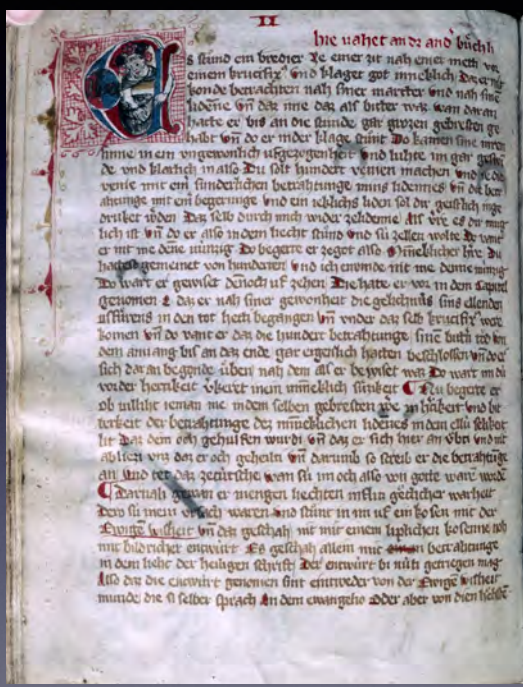 II
hie vahet an dz and büchli
Es stůnd ein bredier ze einer zit nah einer metti vor
einem krucifix vnd klaget got inneklich daz er nit
konde betrachten nah siner marter vnd nah sine
lidenne vn̄ daz ime daz als bitter waz wan daran
hatte er bis an die stunde gar grozen gebresten ge
habt vn̄ do er in der klage stůnt Do kamen sine inren
sinne in ein vngewonlich vfgezogenheit vnd luhte im gar geswi
de vnd klarlich in also Du solt hundert venien machen vnd ie die
venie mit einr sunderlichen betrahtunge mins lidennes vn̄ die betr
ahtunge mit einr begerunge vnd ein iekliches liden sol dir geistlich inge
drüket werden Daz selb durch mich wider ze lidenne Als vrre es dir mug
lich ist vn̄ do er also in dem liecht stůnd vnd sü zellen wolte Do vant
er nit me denne nünzig Do begerte er ze got also Minneklicher herre Du
hattest gemeinet von hunderten vnd ich envinde nit me denne nünzig
Do wart er gewiset dennoch vf zehen Die hate er vor in dem capitel
genomen E daz er nah siner gewonheit die gelichnus sins ellenden
usfürens in den tot hett begangen vn̄ vnder daz selb krucifix were
komen vn̄ do vant er daz die hundert betrahtunge sinen bittern tot von
dem anvang bis an daz ende gar eigenlich hatten beschlossen vn̄ do er
sich dar an begonde üben nah dem als er bewiset waz Do wart im dü
vorder hertikeit verkeret in ein minneklich süssikeit Nu begerte er
ob villiht ieman me in dem selben gebresten were ze hertikeit vnd bit
terkeit der betrahtunge dez minneklichen lidennes in dem ellü selikeit
lit Daz dem och gehulfen wurdi vn̄ daz er sich hier an übti vnd nit
abliezi vnz daz er och geheilti vn̄ darumb so screib er die betrahtunge
an vnd tet daz ze tütsche wan sü im och also von gotte waren worden
Darnah gewan er mengen liechten influs götlicher warheit
Dero sü im ein vrsach waren vnd stůnt in im uf ein kosen mit der
Ewigen wisheit vn̄ daz geschah nit mit einem liplichen kosenne noh
mit bildricher entwürt Es geschah allein mit betrahtunge
in dem lieht der heiligen schrift Der entwürt bi nüti getriegen mag
Also daz die entwürt genomen sint eintweder von der Ewigen wisheit
munde die si selber sprach An dem ewangelio Oder aber von dien hohsten